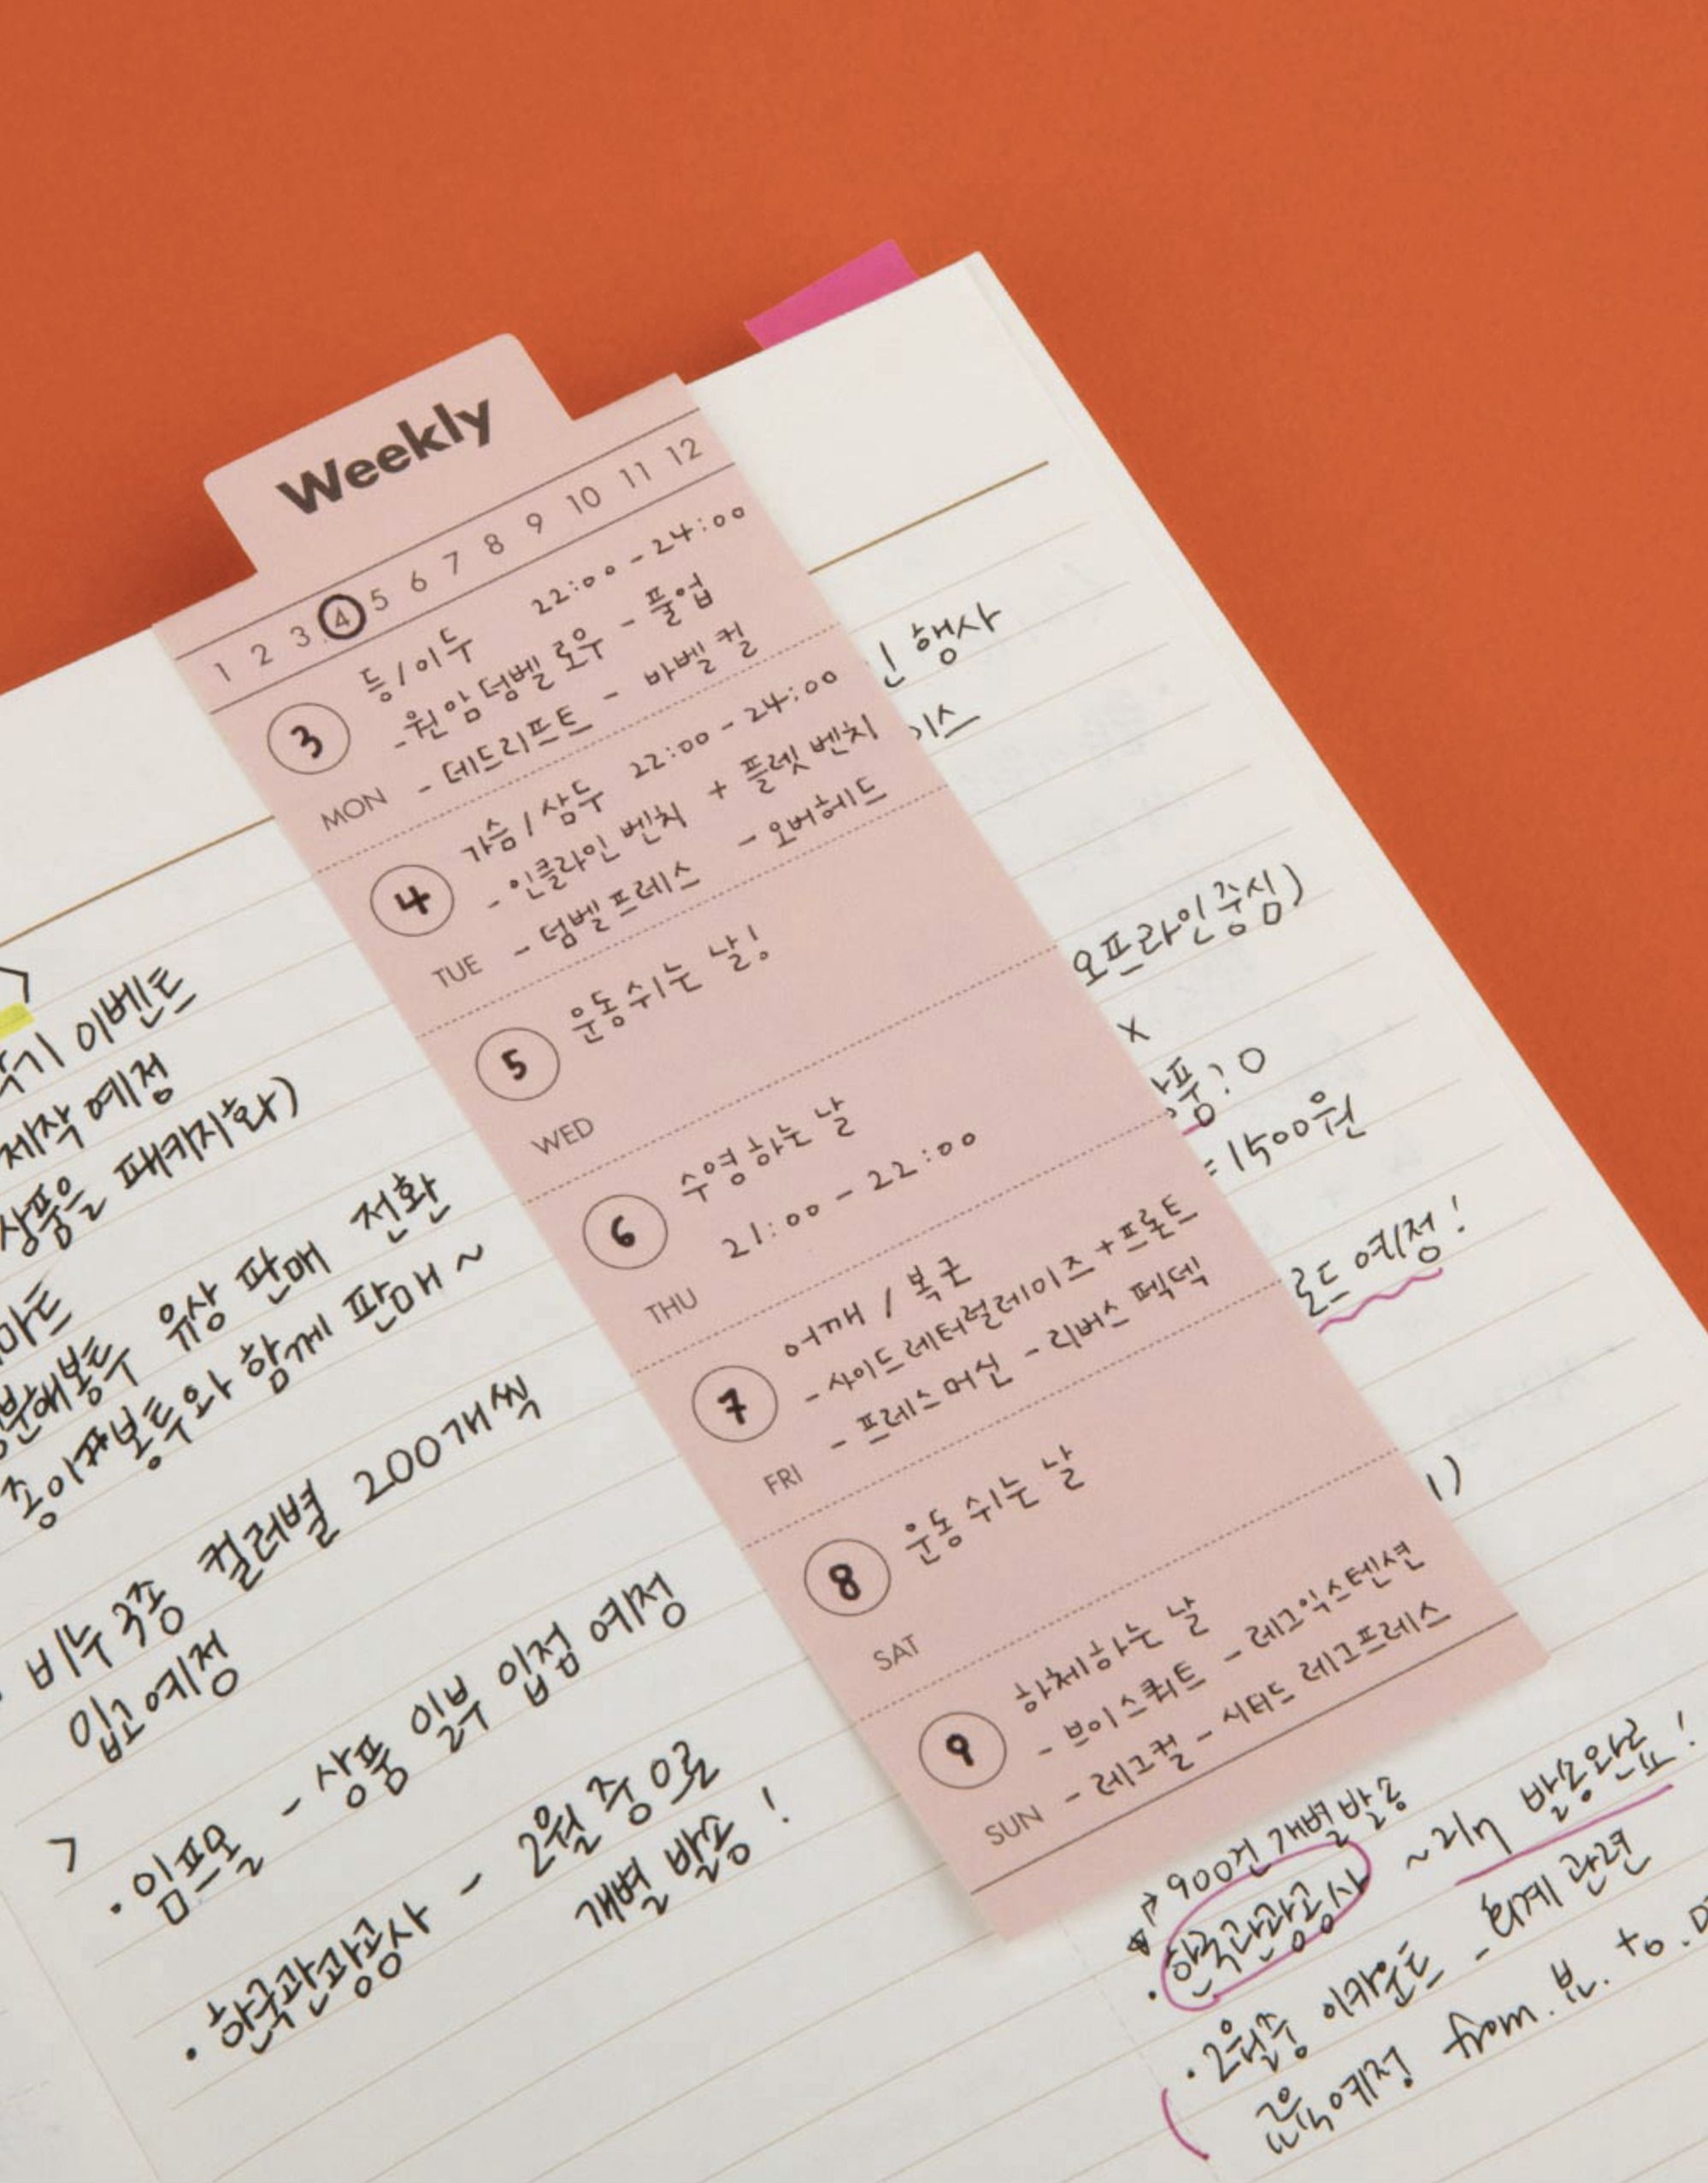 Weekly
1 2 3 4 5 6 7 8 9 10 11 12
3
MON
등/이두 22:00-24:00
-원암덤벨 로우 - 풀업
- 데드리프트 - 바벨 컬
4
TUE
가슴/삼두 22:00-24:00
- 인클라인 벤치 + 플렛 벤치
- 덤벨프레스 - 오버헤드
5
WED
운동쉬는 날!
6
THU
수영하는 날
21:00 - 22:00
7
FRI
어깨 / 복근
- 사이드레터럴레이즈+프론트
- 프레스머신 - 리버스 펙덱
8
SAT
운동 쉬는 날
9
SUN
하체하는 날
- 브이스쿼트 - 레그익스텐션
- 레그컬 - 시티드 레그프레스
이벤트
제작 예정
상품을 패키지화)
유상 판매 전환
종이봉투와 함께 판매 ~
비누 3종 컬러별 200개씩
입고예정
· 임프모 - 상품 일부 입점 예정
· 한국관광공사 - 2월 중으로
개별 발송!
행사
오프라인중심)
x
? O
= 1500원
예정!
900건 개별발송
· 한국관광공사 ~ 발송완료!
· 2월중 이카운트 - 회계 관련
교육예정 from.